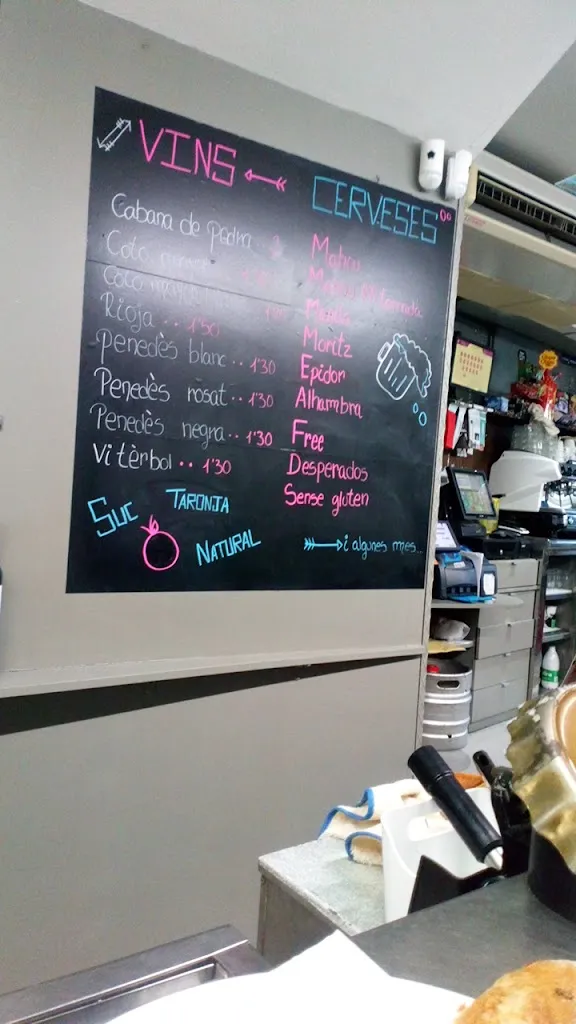 VINS
Cabana de pedra
Coto
Coto
Rioja .. 1'50
Penedès blanc .. 1'30
Penedès rosat .. 1'30
Penedès negra .. 1'30
Vitèrbol .. 1'30
CERVESES
Mahou
Mahou
Moritz
Epidor
Alhambra
Free
Desperados
Sense gluten
i algunes més...
SUC TARONJA
NATURAL